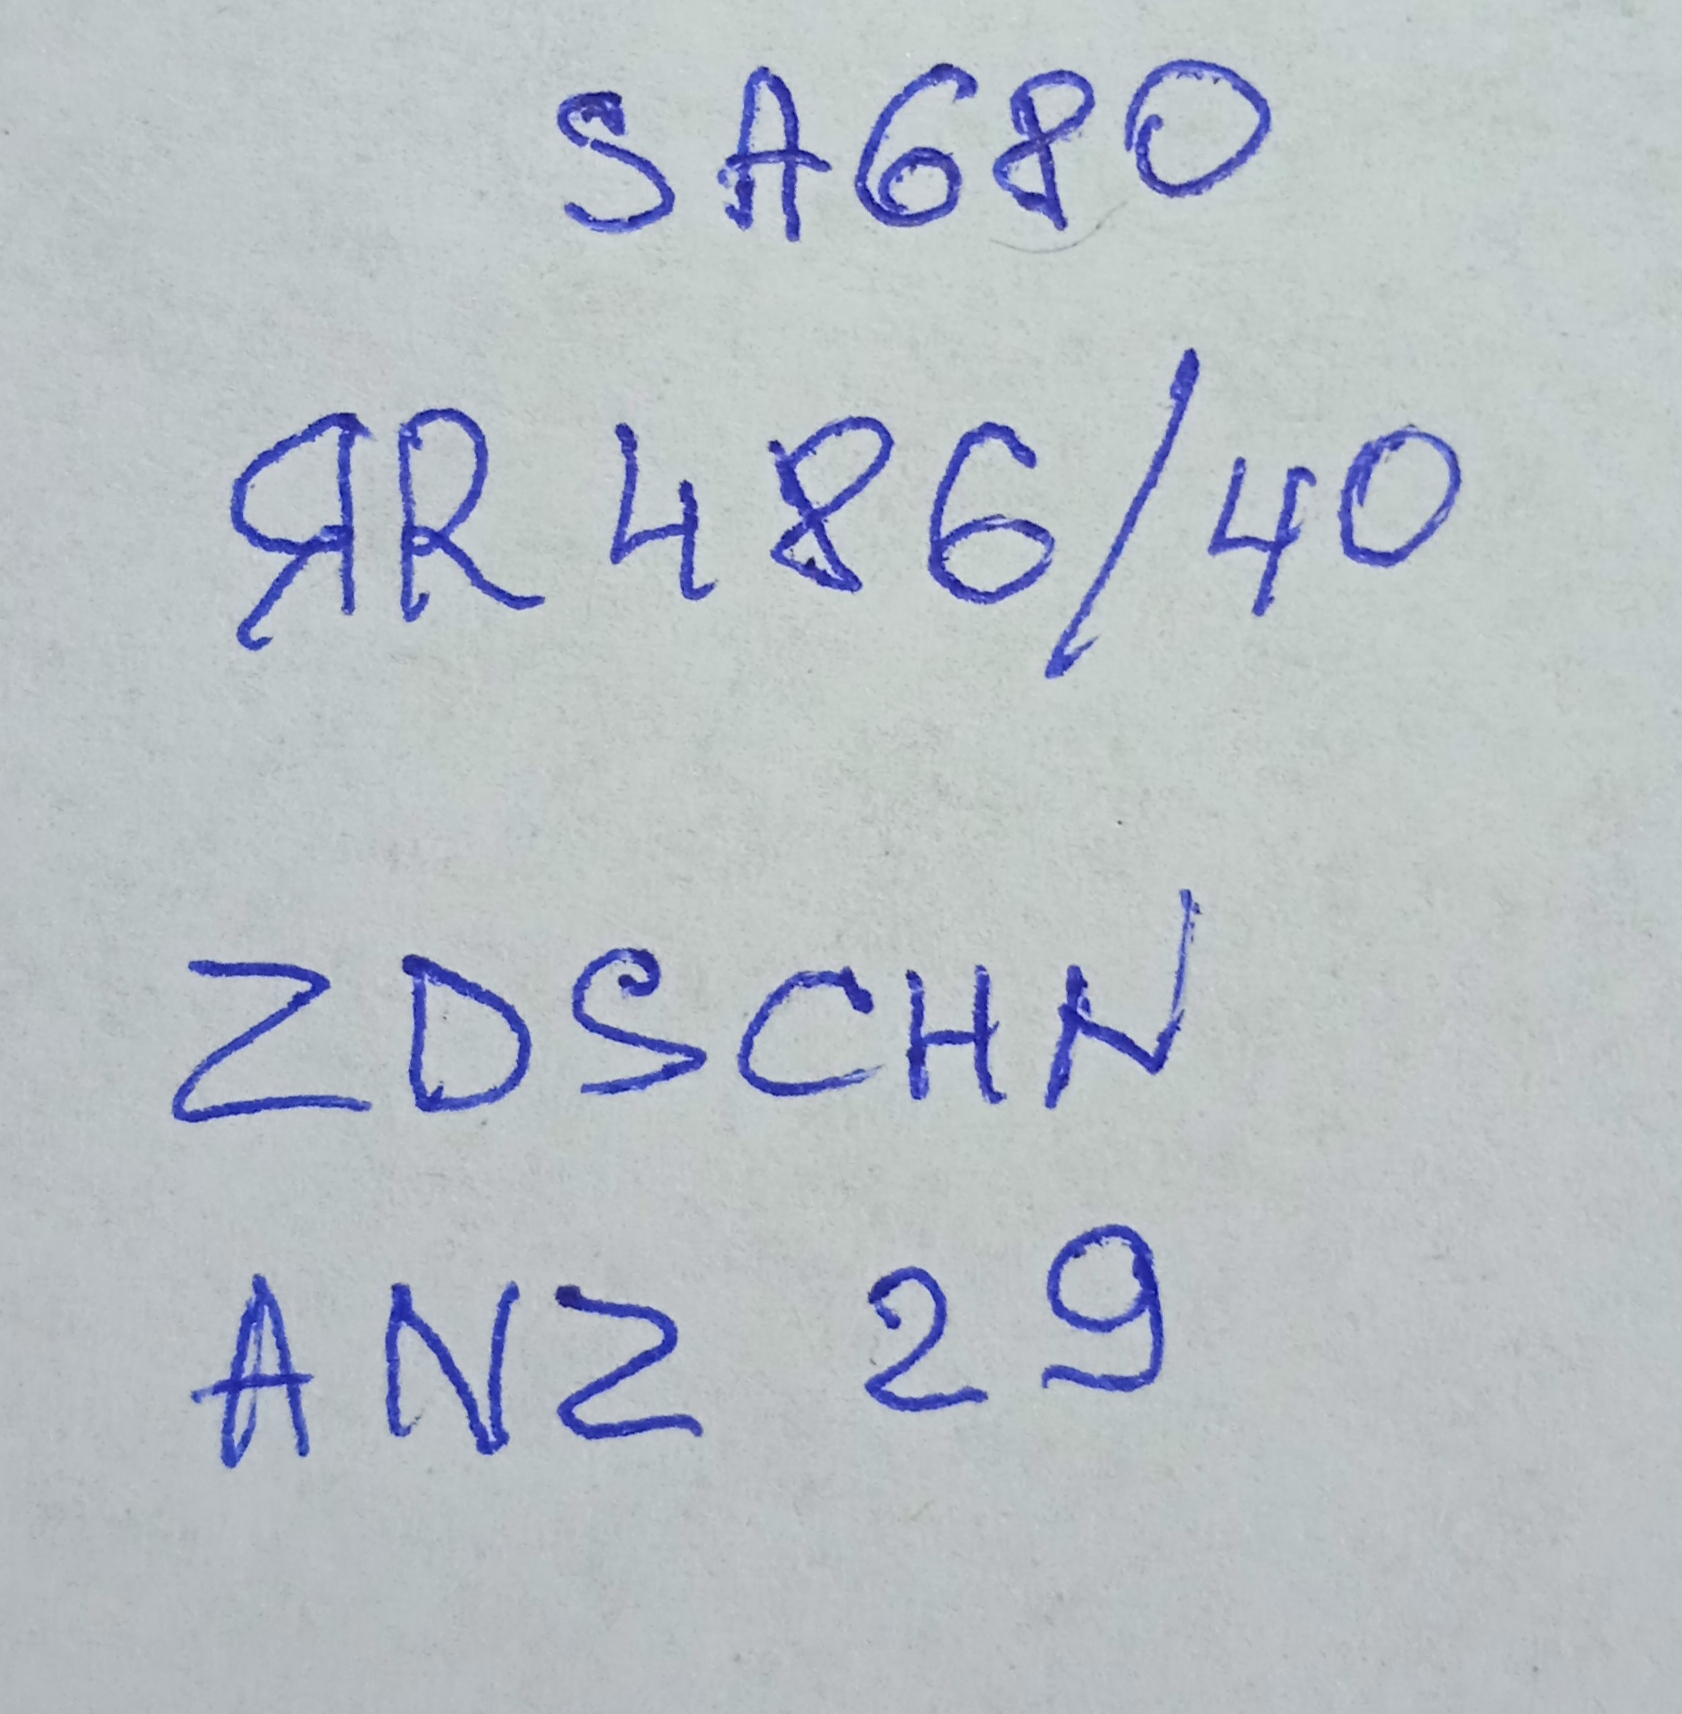 SA680
ЯR 486/40
ZDSCHN
ANZ 29